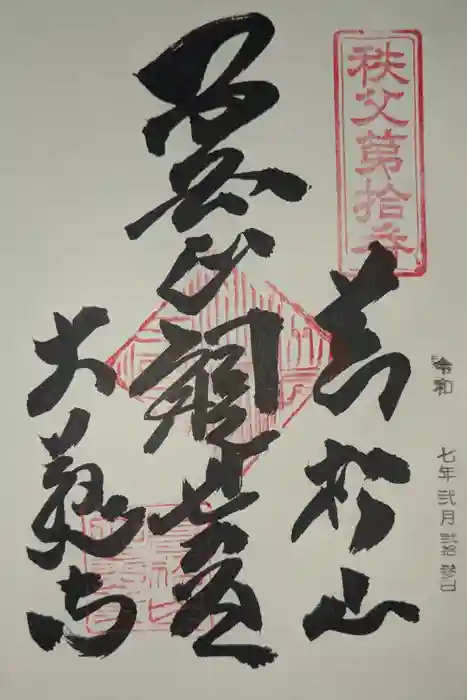 秩父第拾番
萬松山
観世音
大慈寺
令和 七年 弐月 弐拾参日